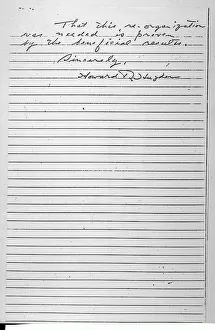 That this re-organization
was needed is proven
by the beneficial results.
Sincerely,
Howard